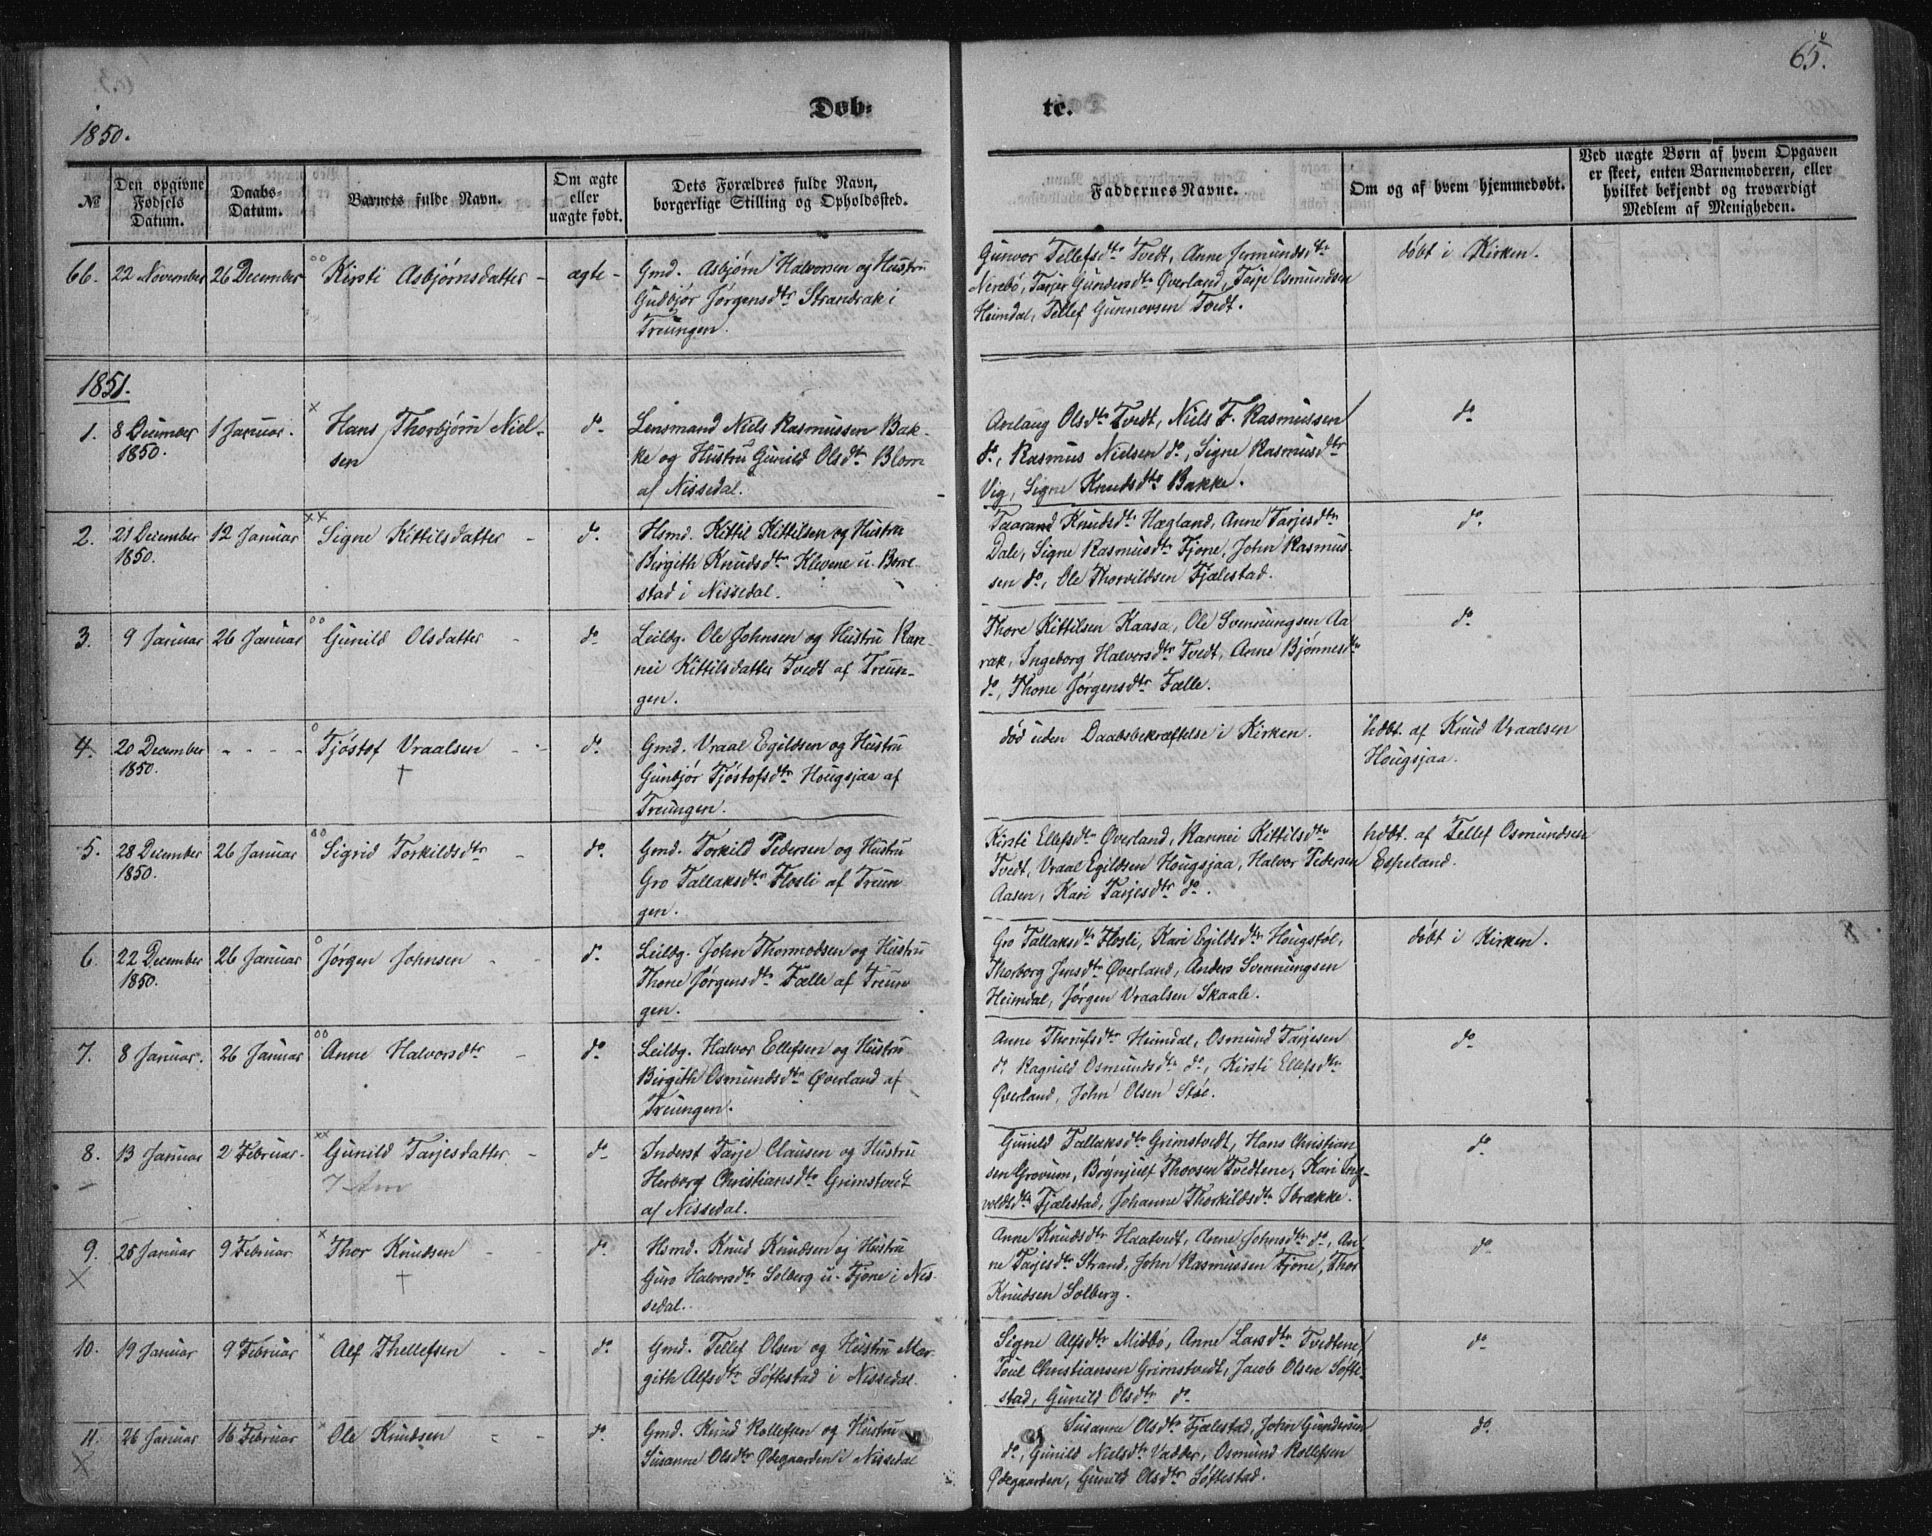 65.
Døb- te.
1850.
№
Den opgivne Fødsels Datum.
Daabs- Datum.
Barnets fulde Navn.
Om ægte eller uægte født.
Dets Forældres fulde Navn, borgerlige Stilling og Opholdssted.
Faddernes Navne.
Om og af hvem hjemmedøbt.
Ved uægte Børn af hvem Opgaven er skeet, enten Barnemoderen, eller hvilket bekjendt og troværdigt Medlem af Menigheden.
66. 22 November 26 December Kirsti Asbjørnsdatter - ægte -
Gmd. Asbjørn Halvorsen og Hustru
Gudbjør Jørgensdtr Strandrak i
Treungen.
Gunvor Tellefsdtr Tvedt, Anne Jermundsdtr
Nerebø, Tarjer Gundersdtr Øverland, Tarje Osmundsen
Heimdal, Tellef Gunnorsen Tvedt.
døbt i Kirken.
1851.
1. 8 December 1850. 1 Januar. Hans Thorbjørn Niel-
sen
do.
Lensmand Niels Rasmussen Bak-
ke og Hustru Gunild Olsdtr Blom
af Nissedal.
Aaslaug Olsdtr Tvedt, Niels F. Rasmussen
do, Rasmus Nielsen do, Signe Rasmusdtr
Vig, Signe Knudsdtr Bakke.
do
2. 21 December 1850. 12 Januar Signe Kittilsdatter - do.
Hsmd. Kittil Kittilsen og Hustru
Birgith Knudsdtr Klevene u. Borre
stad i Nissedal.
Taarand Knudsdtr Hægland, Anne Tarjesdtr
Dale, Signe Rasmusdtr Fjone, John Rasmus-
sen do, Ole Thorvildsen Fjælestad.
do.
3. 9 Januar 26 Januar Gunild Olsdatter - do
Leilbg. Ole Johnsen og Hustru Ran-
nei Kittilsdatter Tvedt af Treun-
gen.
Thore Kittilsen Kaasa, Ole Svennungsen Aa-
rak, Ingeborg Halvorsdtr Tvedt, Anne Bjønnesdtr
do, Thone Jørgensdtr Fælle.
do
4. 20 December 1850. - - - - Tjøstof Vraalsen - - do.
†
Gmd. Vraal Egildsen og Hustru
Gunbjør Tjøstofsdtr Hougsjaa af
Treungen.
død uden Daabsbekræftelse i Kirken.
hdbt. af Knud Vraalsen
Hougsjaa.
5. 28 December 1850. 26 Januar Sigrid Torkildsdtr - do.
Gmd. Torkild Pedersen og Hustru
Gro Tallaksdtr Flosli af Treun
gen.
Kirsti Ellefsdtr Øverland, Rannei Kittilsdtr
Tvedt, Vraal Egildsen Hougsjaa, Halvor Pedersen
Aasen, Kari Tarjesdtr do.
hdbt. af Tellef Osmundsen
Espeland.
6. 22 December 1850. 26 Januar Jørgen Johnsen - - do.
Leilbg. John Thormodsen og Hustru
Thone Jørgensdtr Fælle af Treun
gen.
Gro Tallaksdtr Flosli, Kari Egildsdtr Hougstøl,
Thorborg Jensdtr Øverland, Anders Svennungsen
Heimdal, Jørgen Vraalsen Skaale.
døbt i Kirken.
7. 8 Januar. 26 Januar Anne Halvorsdtr - do.
Leilbg. Halvor Ellefsen og Hustru
Birgith Osmundsdtr Øverland af
Treungen.
Anne Thorufsdtr Heimdal, Osmund Tarjesen
do. Ragnild Osmundsdtr do, Kirsti Ellefsdtr
Øverland, John Olsen Støe.
do
8. 13 Januar 2 Februar. Gunild Tarjesdatter. - do.
Inderst Tarje Clausen og Hustru
Herborg Christiansdtr Grimstvedt
af Nissedal.
Gunild Tallaksdtr Grimstvedt, Hans Christian-
sen Grovum, Brynjulf Thorsen Tvedtene, Kari Ing-
voldsdtr Fjælestad, Johanne Thorkildsdtr Ibrække.
do
9. 25 Januar 9 Februar Thor Knudsen - - do.
†
Hsmd. Knud Knudsen og Hustru
Guro Halvorsdtr Solberg u. Fjone i Nis-
sedal.
Anne Knudsdtr Haatvedt, Anne Johnsdtr do, An-
ne Tarjesdtr Strand, John Rasmussen Fjone, Thor
Knudsen Solberg.
do
10. 19 Januar 9 Februar Alf Thellefsen - - do.
Gmd. Tellef Olsen og Hustru Mar-
gith Alfsdtr Søftestad i Nissedal.
Signe Alfsdtr Midbø, Anne Larsdtr Tvedtene,
Poul Christiansen Grimstvedt, Jacob Olsen Søfte-
stad, Gunild Olsdtr do.
do
11. 26 Januar 16 Februar Ole Knudsen - - do.
Gmd. Knud Rollefsen og Hustru
Susanne Olsdtr Ødegaarden i Nissedal
Susanne Olsdtr Fjælestad, John Gundersen
do, Gunild Nielsdtr Vadder, Osmund Rollefsen
Ødegaarden, Gunild Olsdtr Søftestad.
do.